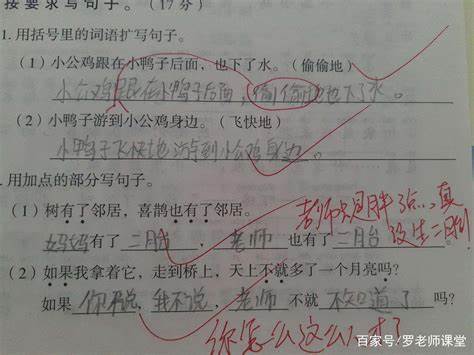 按要求写句子。(17分)
1. 用括号里的词语扩写句子。
(1) 小公鸡跟在小鸭子后面，也下了水。(偷偷地)
小公鸡跟在小鸭子后面，偷偷地也下了水。
(2) 小鸭子游到小公鸡身边。(飞快地)
小鸭子飞快地游到小公鸡身边。
. 用加点的部分写句子。
(1) 树有了邻居，喜鹊也有了邻居。
老师只是胖了
没生二胎
妈妈有了 二月台 ，老师 也有了 二月台 。
(2) 如果我拿着它，走到桥上，天上不就多了一个月亮吗？
如果 你不说，我不说 ，老师 不就 不知道了 吗？
你怎么这么
百家号/罗老师课堂